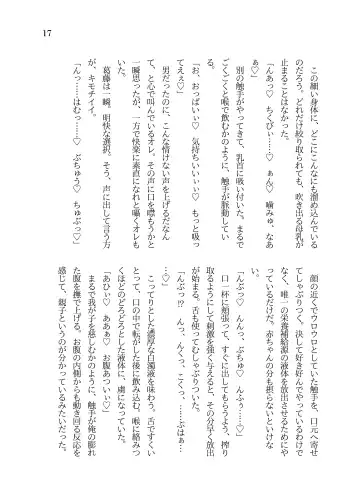 17
この細い身体に、どこにこんなにも溜め込んでいる
のだろう。どれだけ絞り取られても、吹き出る母乳が
止まることはなかった。
「んあっ♡　ちくびぃ……♡　ぁん♡　噛みゅ、なあ
ぁ♡」
別の触手がやってきて、乳首に吸い付いた。まるで
ごくごくと喉で飲むかのように、触手が脈動してい
る。
「お、おっぱいぃ♡　気持ちいいぃぃ♡　もっと吸っ
てえぇ♡」
男だったのに、こんな情けない声を上げるだなん
て、と心で叫んでいるオレ。その声に口を噤もうかと
一瞬思ったが、一方で快楽に素直になれと囁くオレも
いた。
葛藤は一瞬。明快な選択。そう、声に出して言う方
が、キモチイイ。
「んっ……はむっ……♡　ぷちゅう♡　ちゅぷっ♡」
顔の近くでウロウロとしていた触手を、口元へ寄せ
てしゃぶりつく。決して好き好んでやっているわけで
なく、唯一の栄養補給源の液体を放出させるためにや
っているだけだ。赤ちゃんの分も摂らないといけな
い。
「んぶっ♡　んんっ、ぷちゅ♡　んふぅ……♡」
口一杯に頬張って、すぐに出してもらうよう、搾り
取るようにして刺激を強く与えると、その分早く放出
が始まる。舌も使ってむしゃぶりついた。
「んぶっ!?　んっ、んくっ、こく、……ぷはぁ…
…♡」
こってりとした濃厚な白濁液を味わう。舌ですくい
とって、口の中で転がした後に飲み込む。喉に絡みつ
くほどのどろどろとした液体に、虜になっていた。
「あひぃ♡　あああぁ♡　お腹あついぃ♡」
まるで我が子を慈しむかのように、触手が俺の膨れ
た腹を撫で上げる。お腹の内側からも動き回る反応を
感じて、親子というのが分かっているみたいだった。